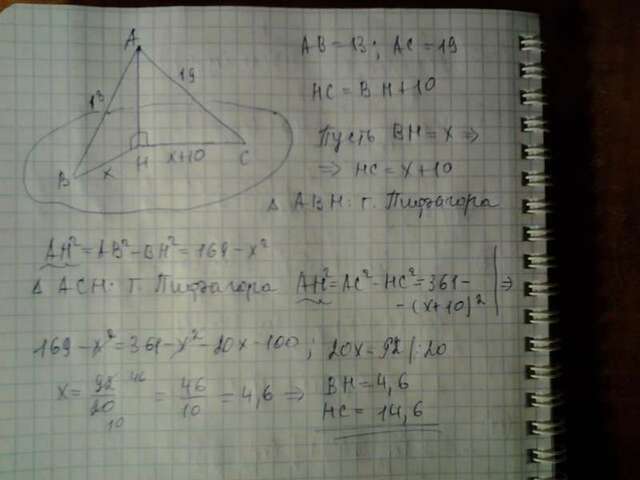 A
13
19
B
x
H
x+10
C
AB=13; AC=19
HC=BH+10
Пусть BH=x ⇒
⇒ HC=x+10
Δ ABH: т. Пифагора
AH²=AB²-BH²=169-x²
Δ ACH: т. Пифагора AH²=AC²-HC²=361-
-(x+10)² ⇒
169-x²=361-x²-20x-100; 20x=92 |:20
x= 92/20 46 10 = 46/10 =4,6 ⇒ BH=4,6
HC=14,6